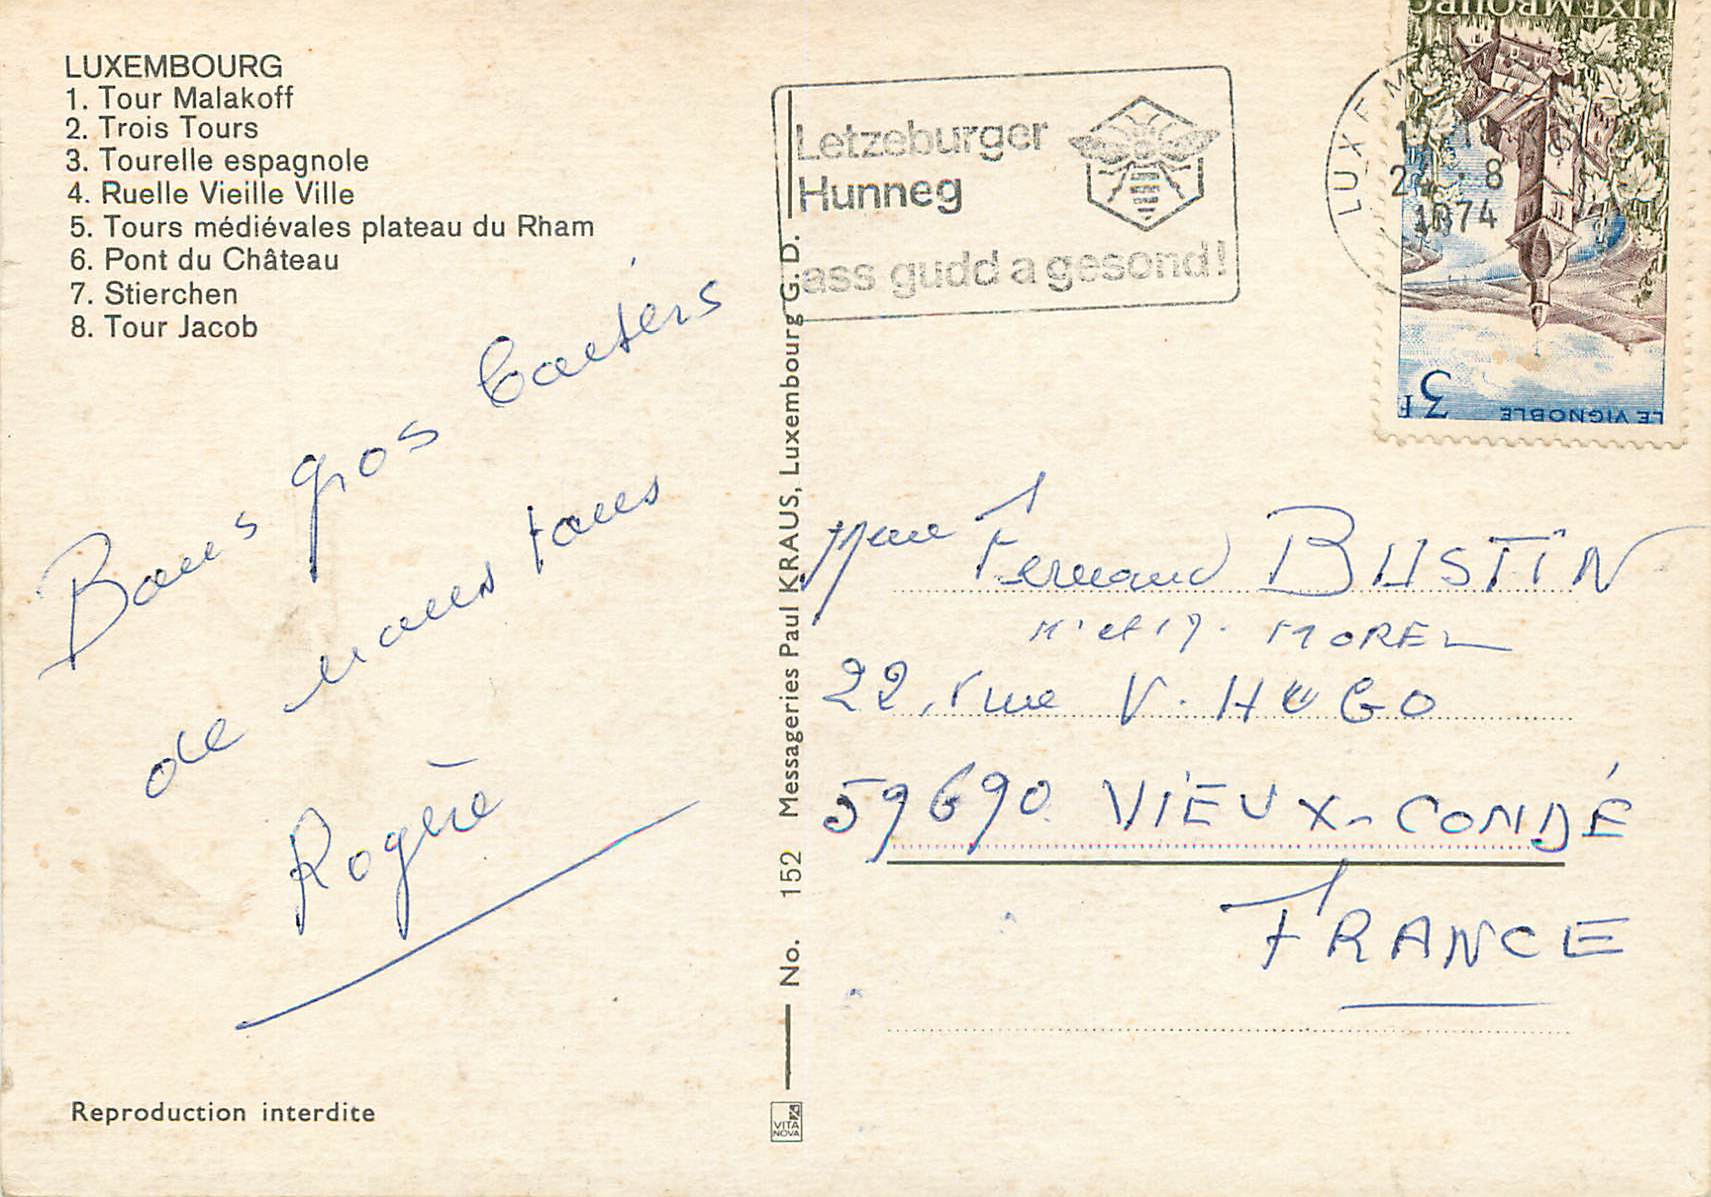 LUXEMBOURG
1. Tour Malakoff
2. Trois Tours
3. Tourelle espagnole
4. Ruelle Vieille Ville
5. Tours médiévales plateau du Rham
6. Pont du Château
7. Stierchen
8. Tour Jacob
Bons gros baisers
de nous tous
Rogère
Reproduction interdite
No. 152 Messageries Paul KRAUS, Luxembourg G. D.
VITA
NOVA
Letzeburger
Hunneg
ass gudd a gesond!
LUXEM
8
1974
LUXEMBOURG
3F
LE VIGNOBLE
Mme Fernand BUSTIN
Mr et M. MOREL
22, rue V. HUGO
59690 VIEUX-CONDÉ
FRANCE